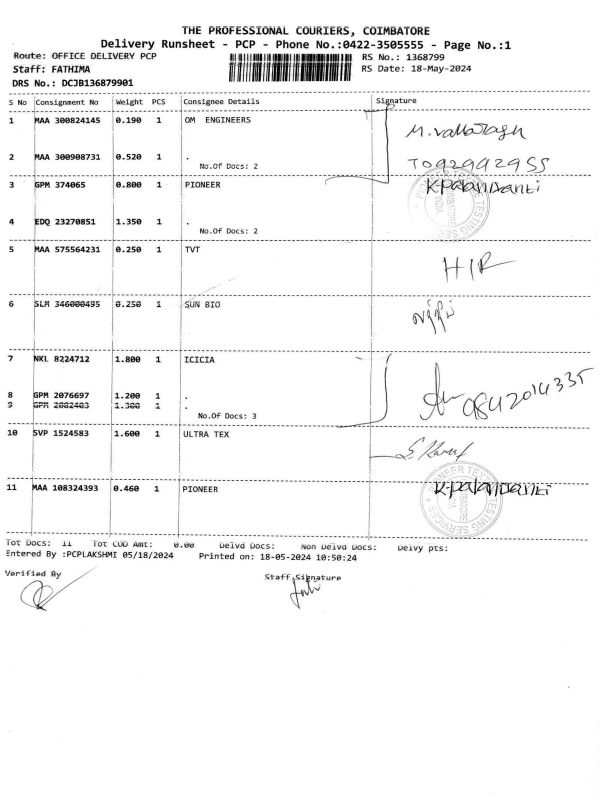 THE PROFESSIONAL COURIERS, COIMBATORE
Delivery Runsheet - PCP - Phone No.:0422-3505555 - Page No.:1
Route: OFFICE DELIVERY PCP RS No.: 1368799
Staff: FATHIMA RS Date: 18-May-2024
DRS No.: DCJB136879901
S No Consignment No Weight PCS Consignee Details Signature
1 MAA 300824145 0.190 1 OM ENGINEERS
2 MAA 300908731 0.520 1 .
No.Of Docs: 2
3 GPM 374065 0.800 1 PIONEER K-Palandanti
4 EDQ 23270851 1.350 1 .
No.Of Docs: 2
5 MAA 575564231 0.250 1 TVT
6 SLM 346000495 0.250 1 SUN BIO
7 NKL 8224712 1.800 1 ICICIA
8 GPM 2076697 1.200 1 .
9 GPM 2082403 1.300 1 .
No.Of Docs: 3
10 SVP 1524583 1.600 1 ULTRA TEX
11 MAA 108324393 0.460 1 PIONEER K-Palandanti
Tot Docs: 11 Tot COD Amt: 0.00 Delvd Docs: Non Delvd Docs: Delvy pts:
Entered By :PCPLAKSHMI 05/18/2024 Printed on: 18-05-2024 10:50:24
Verified By Staff Signature